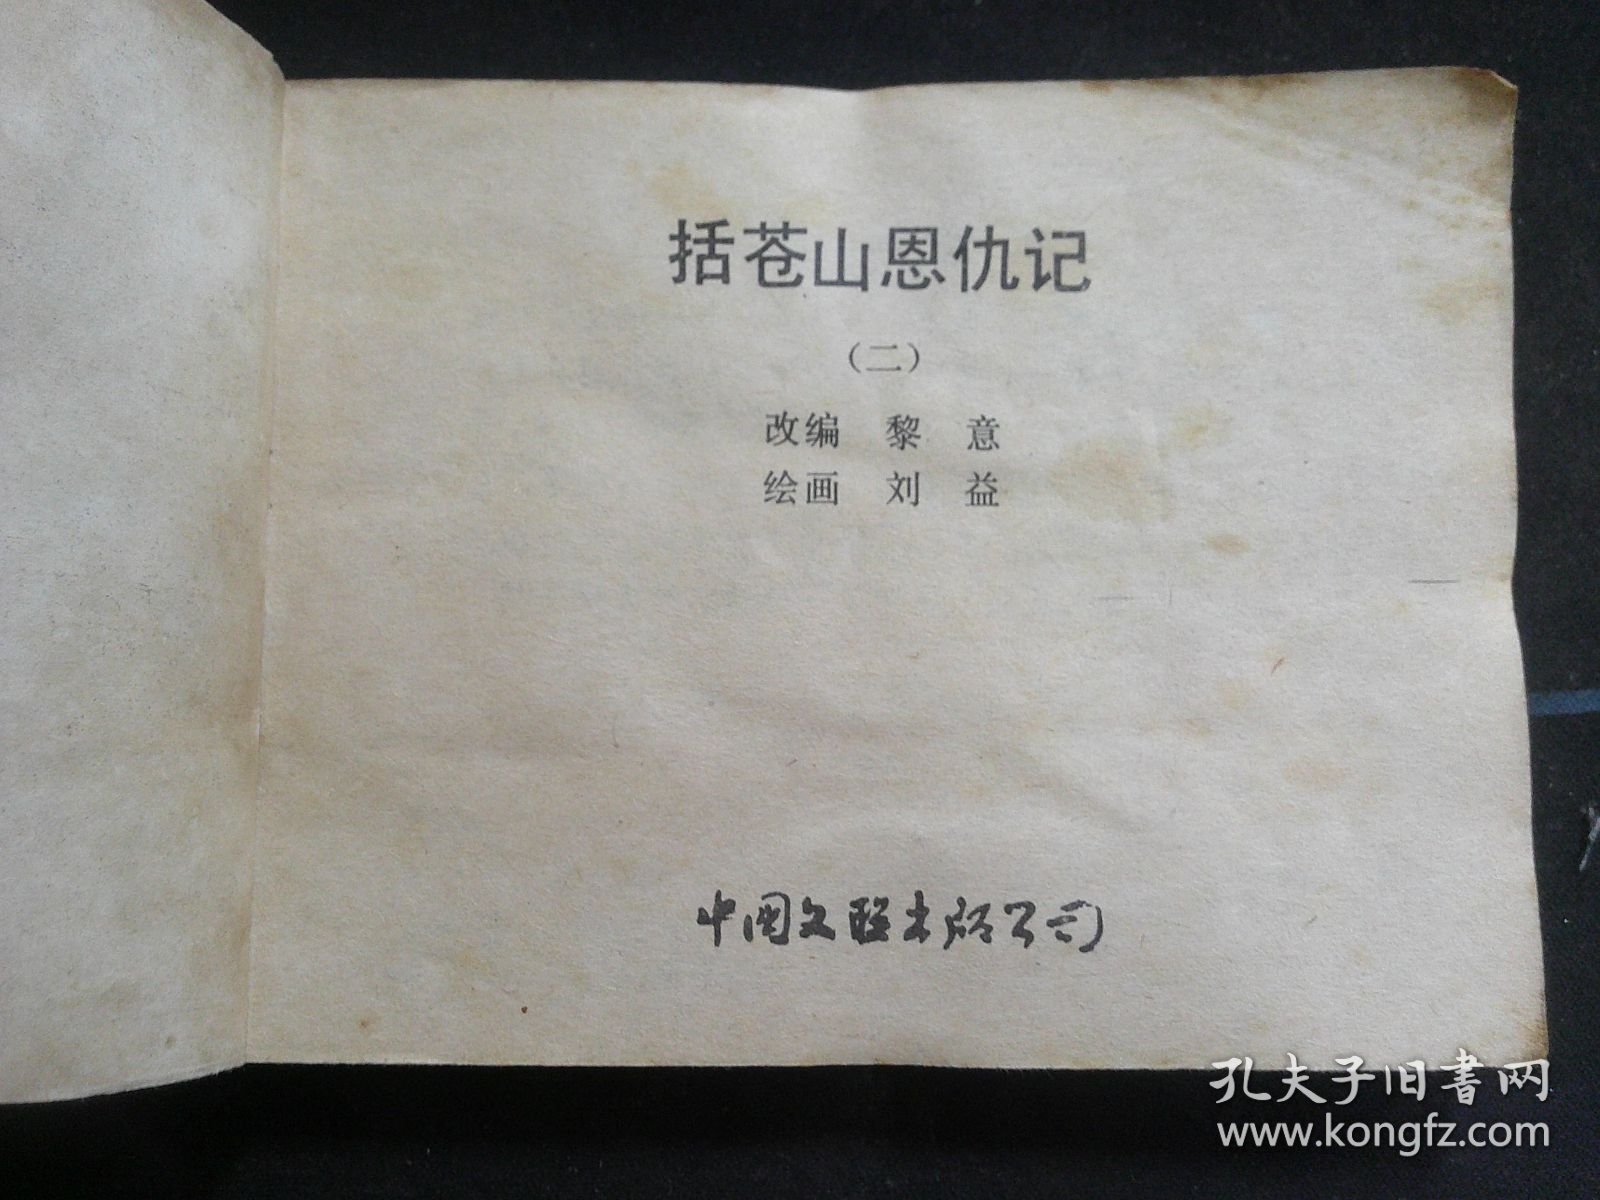 括苍山恩仇记
（二）
改编 黎 意
绘画 刘 益
中国文联出版公司
孔夫子旧書网
www.kongfz.com